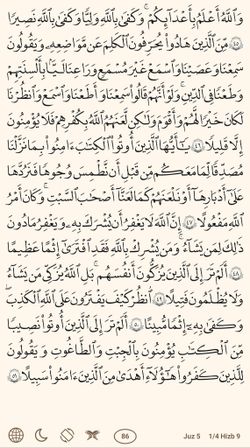 وَٱللَّهُ أَعْلَمُ بِأَعْدَآئِكُمْ ۚ وَكَفَىٰ بِٱللَّهِ وَلِيًّا وَكَفَىٰ بِٱللَّهِ نَصِيرًا
٤٥ مِّنَ ٱلَّذِينَ هَادُوا۟ يُحَرِّفُونَ ٱلْكَلِمَ عَن مَّوَاضِعِهِۦ وَيَقُولُونَ
سَمِعْنَا وَعَصَيْنَا وَٱسْمَعْ غَيْرَ مُسْمَعٍ وَرَٰعِنَا لَيًّۢا بِأَلْسِنَتِهِمْ
وَطَعْنًا فِى ٱلدِّينِ ۚ وَلَوْ أَنَّهُمْ قَالُوا۟ سَمِعْنَا وَأَطَعْنَا وَٱسْمَعْ وَٱنظُرْنَا
لَكَانَ خَيْرًا لَّهُمْ وَأَقْوَمَ وَلَٰكِن لَّعَنَهُمُ ٱللَّهُ بِكُفْرِهِمْ فَلَا يُؤْمِنُونَ
إِلَّا قَلِيلًا ٤٦ يَٰٓأَيُّهَا ٱلَّذِينَ أُوتُوا۟ ٱلْكِتَٰبَ ءَامِنُوا۟ بِمَا نَزَّلْنَا
مُصَدِّقًا لِّمَا مَعَكُم مِّن قَبْلِ أَن نَّطْمِسَ وُجُوهًا فَنَرُدَّهَا
عَلَىٰٓ أَدْبَارِهَآ أَوْ نَلْعَنَهُمْ كَمَا لَعَنَّآ أَصْحَٰبَ ٱلسَّبْتِ ۚ وَكَانَ أَمْرُ
ٱللَّهِ مَفْعُولًا ٤٧ إِنَّ ٱللَّهَ لَا يَغْفِرُ أَن يُشْرَكَ بِهِۦ وَيَغْفِرُ مَا دُونَ
ذَٰلِكَ لِمَن يَشَآءُ ۚ وَمَن يُشْرِكْ بِٱللَّهِ فَقَدِ ٱفْتَرَىٰٓ إِثْمًا عَظِيمًا
٤٨ أَلَمْ تَرَ إِلَى ٱلَّذِينَ يُزَكُّونَ أَنفُسَهُم ۚ بَلِ ٱللَّهُ يُزَكِّى مَن يَشَآءُ
وَلَا يُظْلَمُونَ فَتِيلًا ٤٩ ٱنظُرْ كَيْفَ يَفْتَرُونَ عَلَى ٱللَّهِ ٱلْكَذِبَ ۖ
وَكَفَىٰ بِهِۦٓ إِثْمًا مُّبِينًا ٥٠ أَلَمْ تَرَ إِلَى ٱلَّذِينَ أُوتُوا۟ نَصِيبًا
مِّنَ ٱلْكِتَٰبِ يُؤْمِنُونَ بِٱلْجِبْتِ وَٱلطَّٰغُوتِ وَيَقُولُونَ
لِلَّذِينَ كَفَرُوا۟ هَٰٓؤُلَآءِ أَهْدَىٰ مِنَ ٱلَّذِينَ ءَامَنُوا۟ سَبِيلًا ٥١
86 Juz 5 1/4 Hizb 9